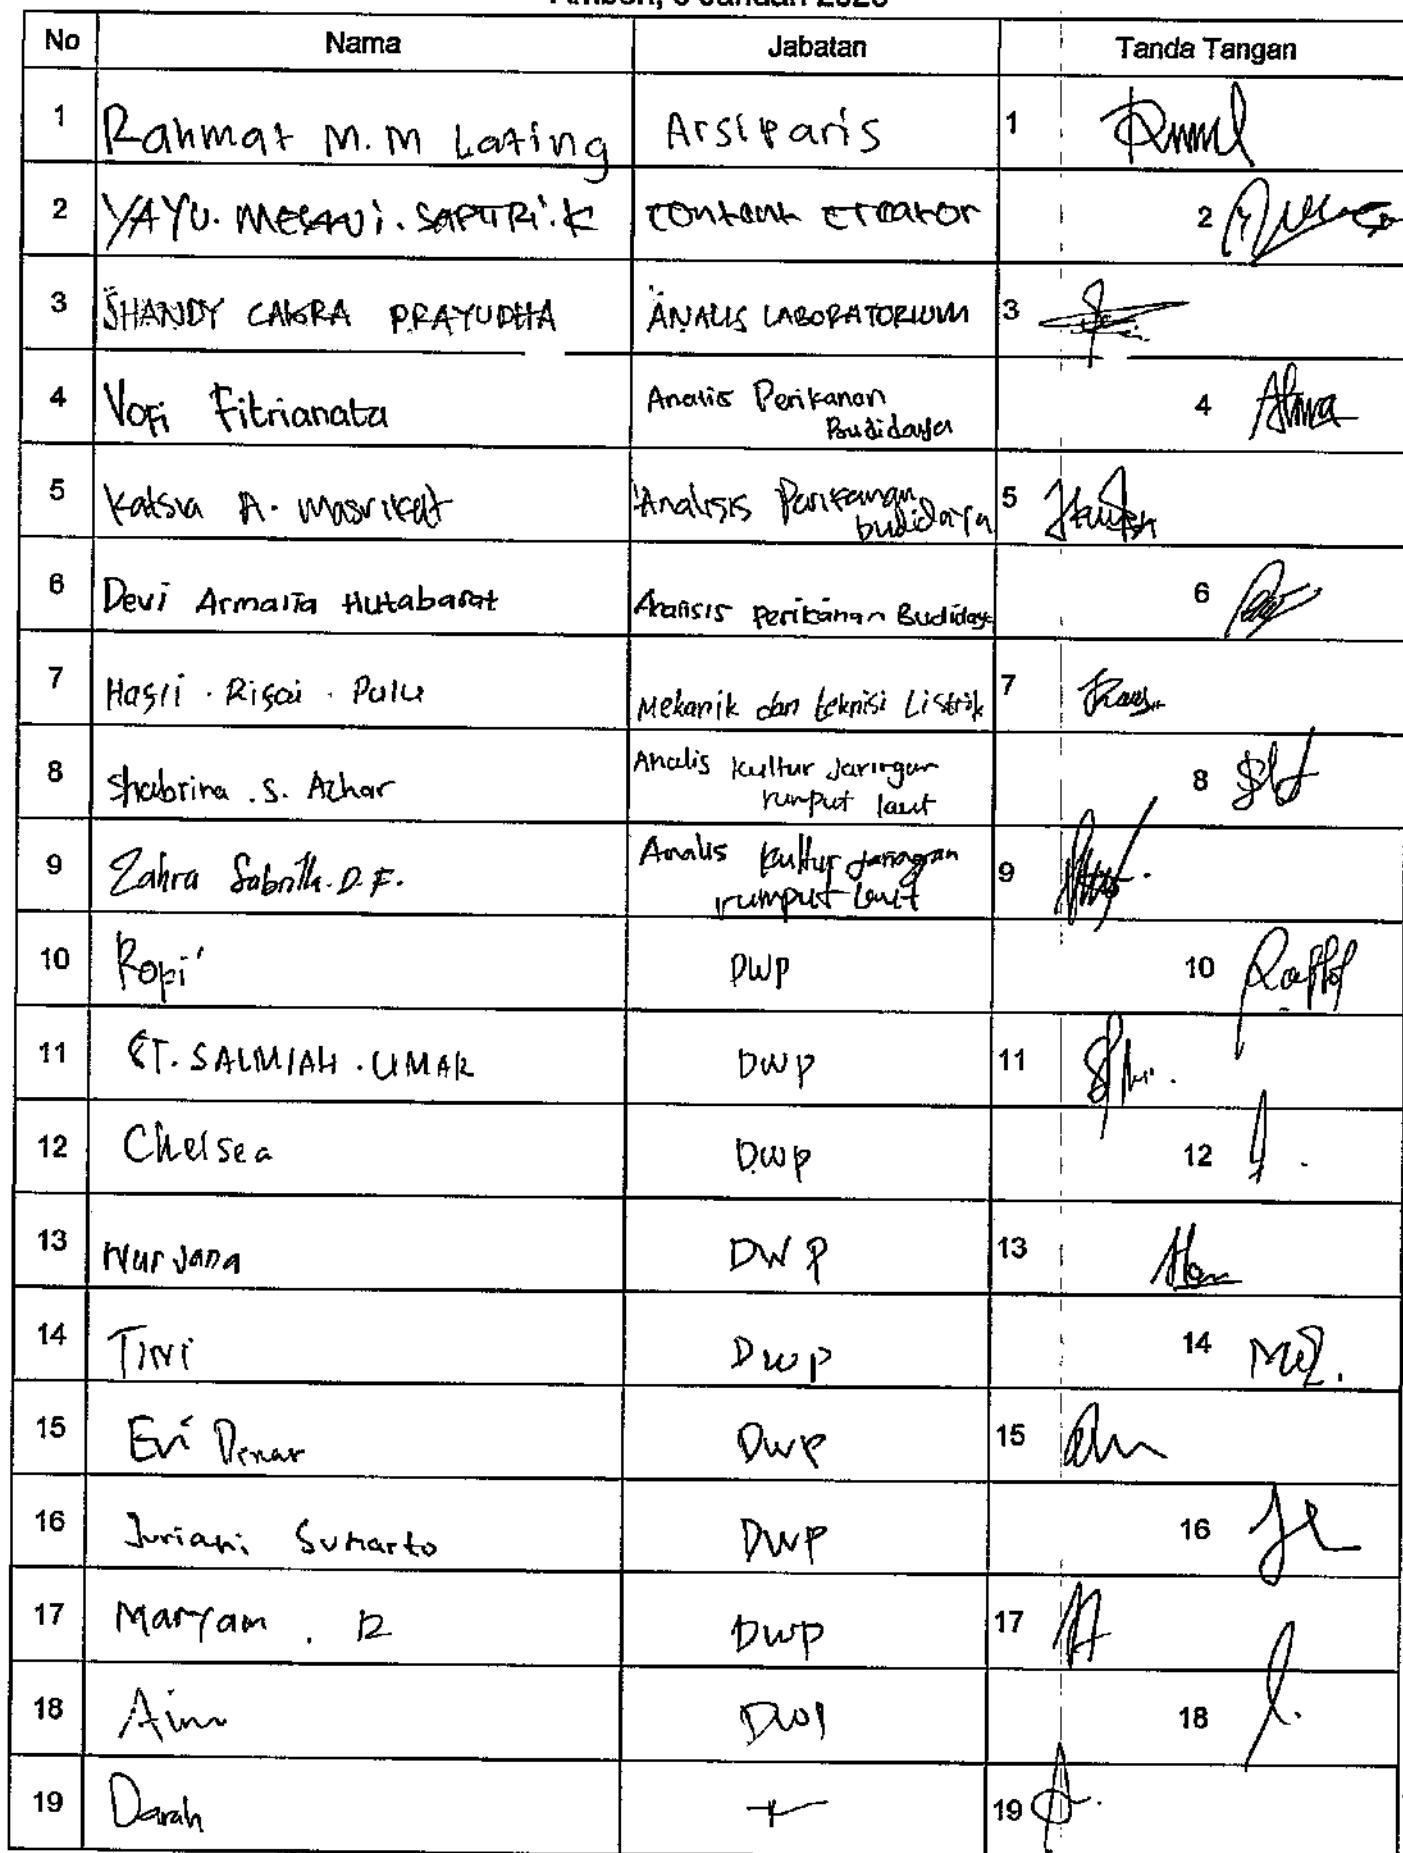 No Nama Jabatan Tanda Tangan
1 Rahmat M.M Lating Arsiparis 1
2 YAYU. MEGAWi. SAPUTRi.K content creator 2
3 SHANDY CAKRA PRAYUDHA ANALIS LABORATORIUM 3
4 Vofi Fitrianata Analis Perikanan 4
Budidaya
5 Katsia A. Masrikat Analisis Perikanan 5
budidaya
6 Devi Armalia Hutabarat Analisis Perikanan Budidaya 6
7 Hasli . Risai . Palu Mekanik dan teknisi Listrik 7
8 Shabrina .S. Azhar Analis Kultur Jaringan 8
rumput laut
9 Zahra Sabrilla. D.F. Analis Kultur Jaringan 9
rumput laut
10 Ropi' DWP 10
11 ST. SALMIAH . UMAR DWP 11
12 Chelsea DWP 12
13 Nur Jana DWP 13
14 TiNi DWP 14
15 Evi Denar DWP 15
16 Juriani Sunarto DWP 16
17 Maryam . R DWP 17
18 Aim DWP 18
19 Darah 19